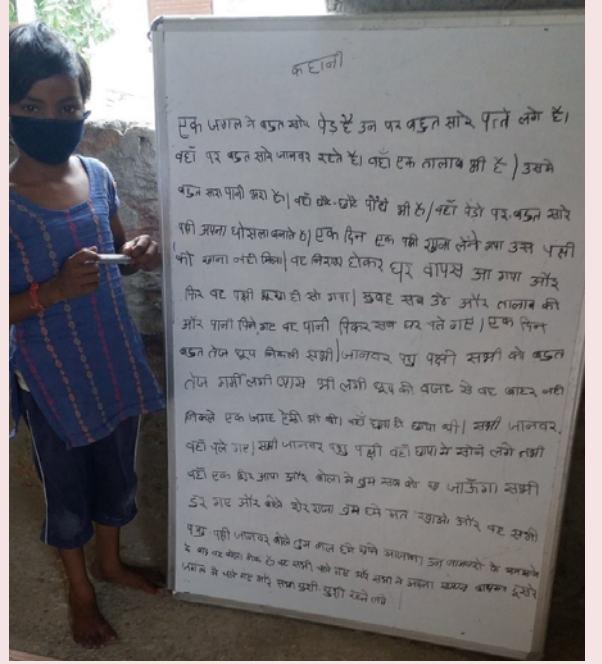 कहानी
एक जगल मे बहुत सारे पेड़ है उन पर बहुत सारे पाते लगे है।
वहाँ पर बहुत सारे जानवर रहते है। वहाँ एक तालाब भी है। उसमे
बहुत सारा पानी भरा है। वहाँ छोटे-छोटे पौधे भी है। वहाँ पेडो पर बहुत सारे
पक्षी अपना घोसला बनाते है। एक दिन एक पक्षी खाना लेने गया उस पक्षी
को खाना नही मिला। वह निराश होकर घर वापस आ गया और
फिर वह पक्षी भूखा ही सो गया। सुबह सब उठे और तालाब की
और पानी पिने गए वह पानी पिकर सब घर चले गए। एक दिन
बहुत तेज धूप निकली सभी जानवर पशु पक्षी सभी को बहुत
तेज गर्मी लगी प्यास भी लगी धूप की वजह से वह बाहर नही
निकले एक जगह ऐसी भी थी। वहाँ छाया ही छाया थी। सभी जानवर
वहाँ चले गए। सभी जानवर पशु पक्षी वहाँ छाया मे सोने लगे तभी
वहाँ एक शेर आया और बोला मे तुम सब को खा जाऊँगा। सभी
डर गए और बोले शेर राजा तुम हमे मत खाओ और वह सभी
पशु पक्षी जानवर बोले तुम कल हमे खाने आजाना उन जानवरो के
के बाद वह बोला ठीक है वह सभी चले गए और सभी ने अपना
जगल मे चले गए और सभी खुशी-खुशी रहने लगे